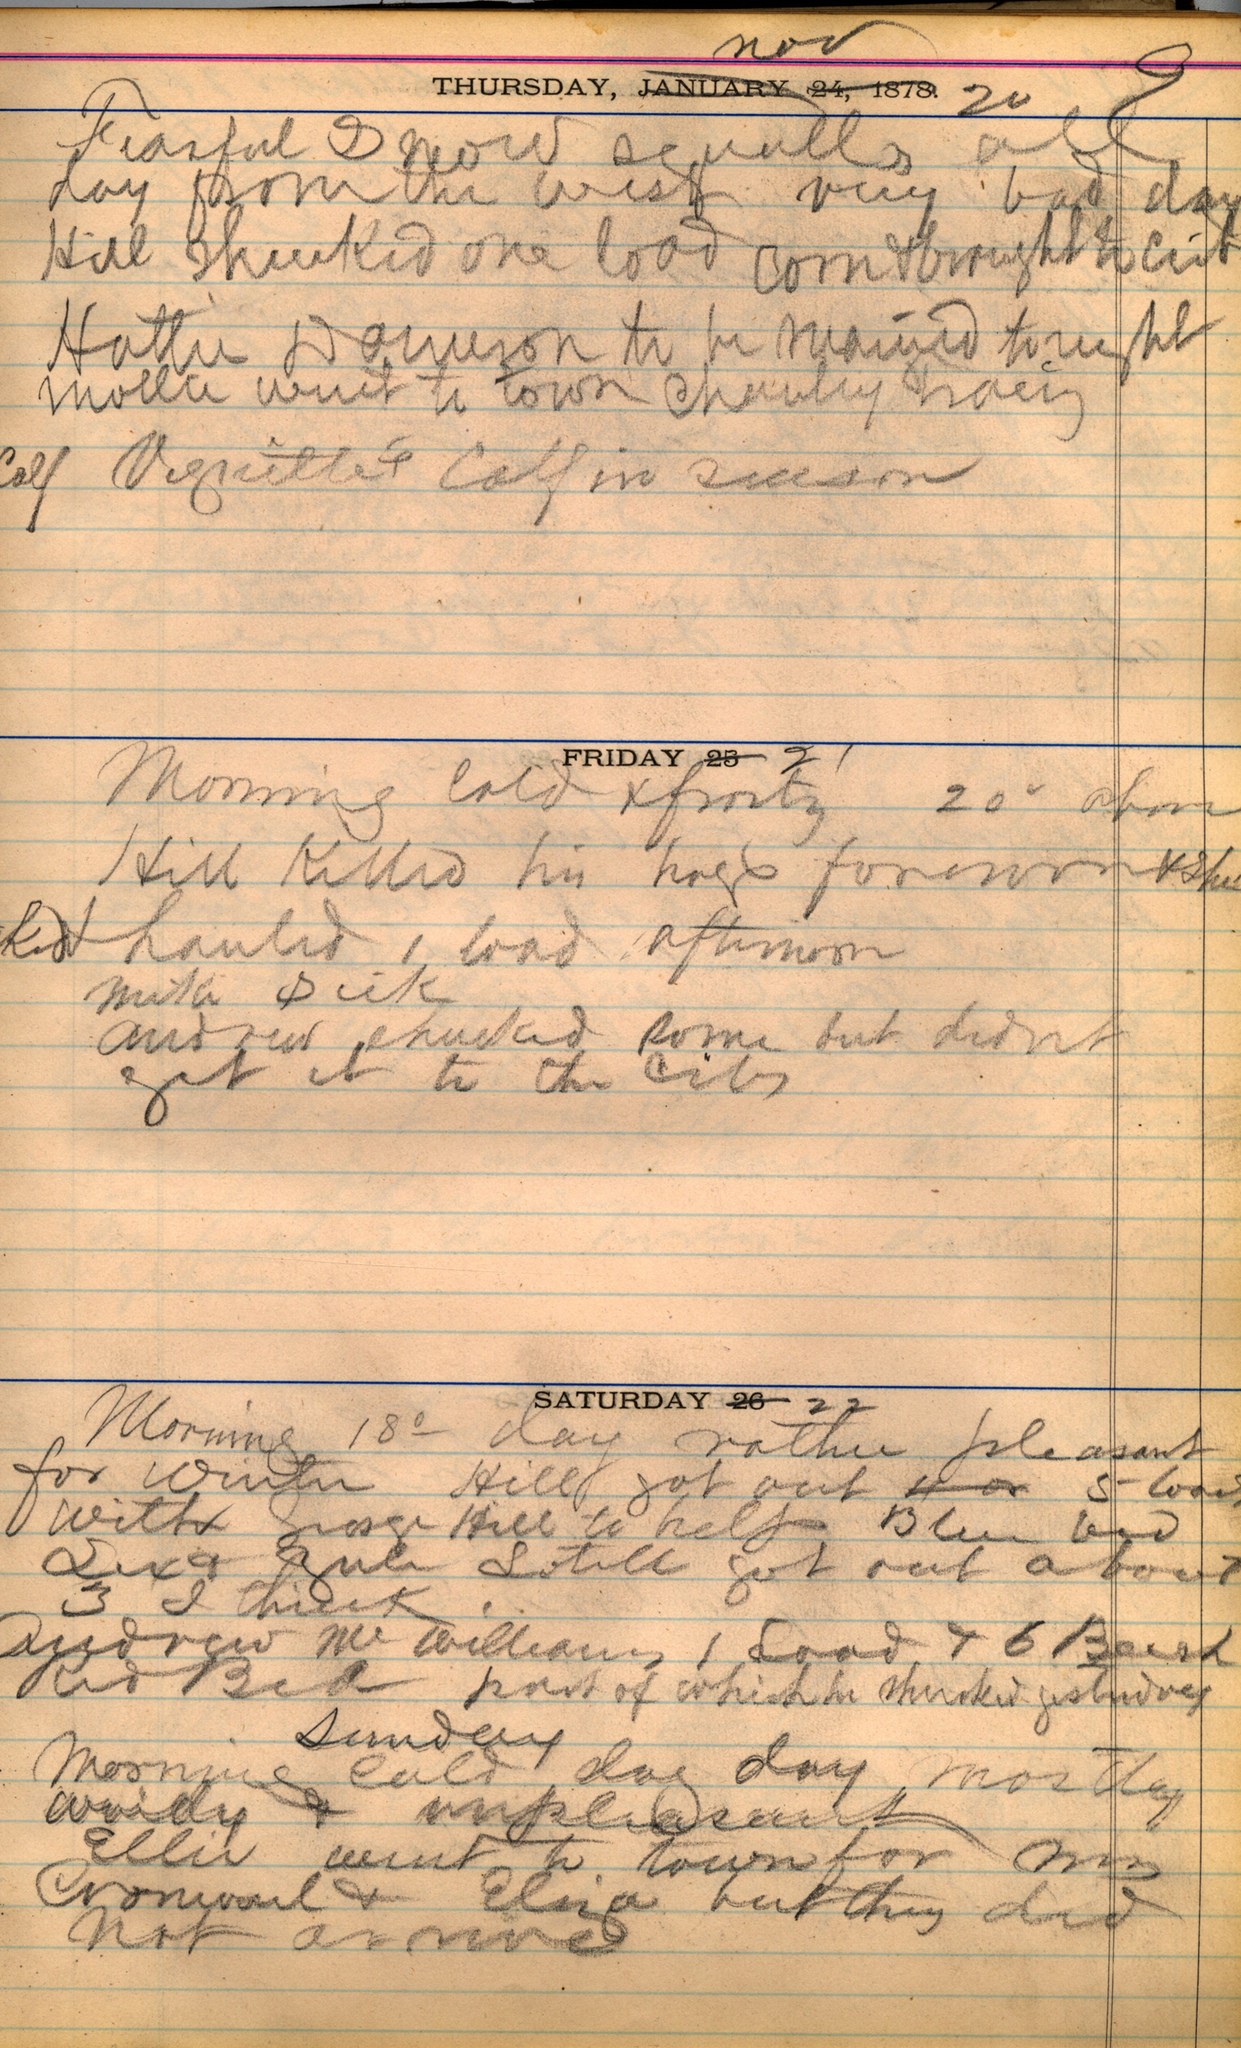 nov
THURSDAY, JANUARY 24, 1878. 20
Fearful Snow squalls all
day from the west very bad day
Hill Shucked one load corn & brought to Crib
Hattie Dameron to be Maried tonight
Mollie went to town Charley Tracy
Calf Vignette's Calf in season
FRIDAY 25 21
Morning Cold & frosty 20° above
Hill Killed his hogs forenoon & Shuc
ked hauled 1 load afternoon
Mike Sick
Andrew shucked some but didnt
get it to the Cribs
SATURDAY 26 22
Morning 18° day rather pleasant
for Winter Hill got out 4 or 5 loads
With George Hill to help Blue bed
Lotell got out about
3 I think.
Andrew McWilliams 1 Load & 6 Bush
Red Bed part of which he shucked yesterday
Sunday
Morning Cold day day mostly
windy & unpleasant
Ellie went to town for Mrs
Cromwell & Eliza but they did
Not arrive